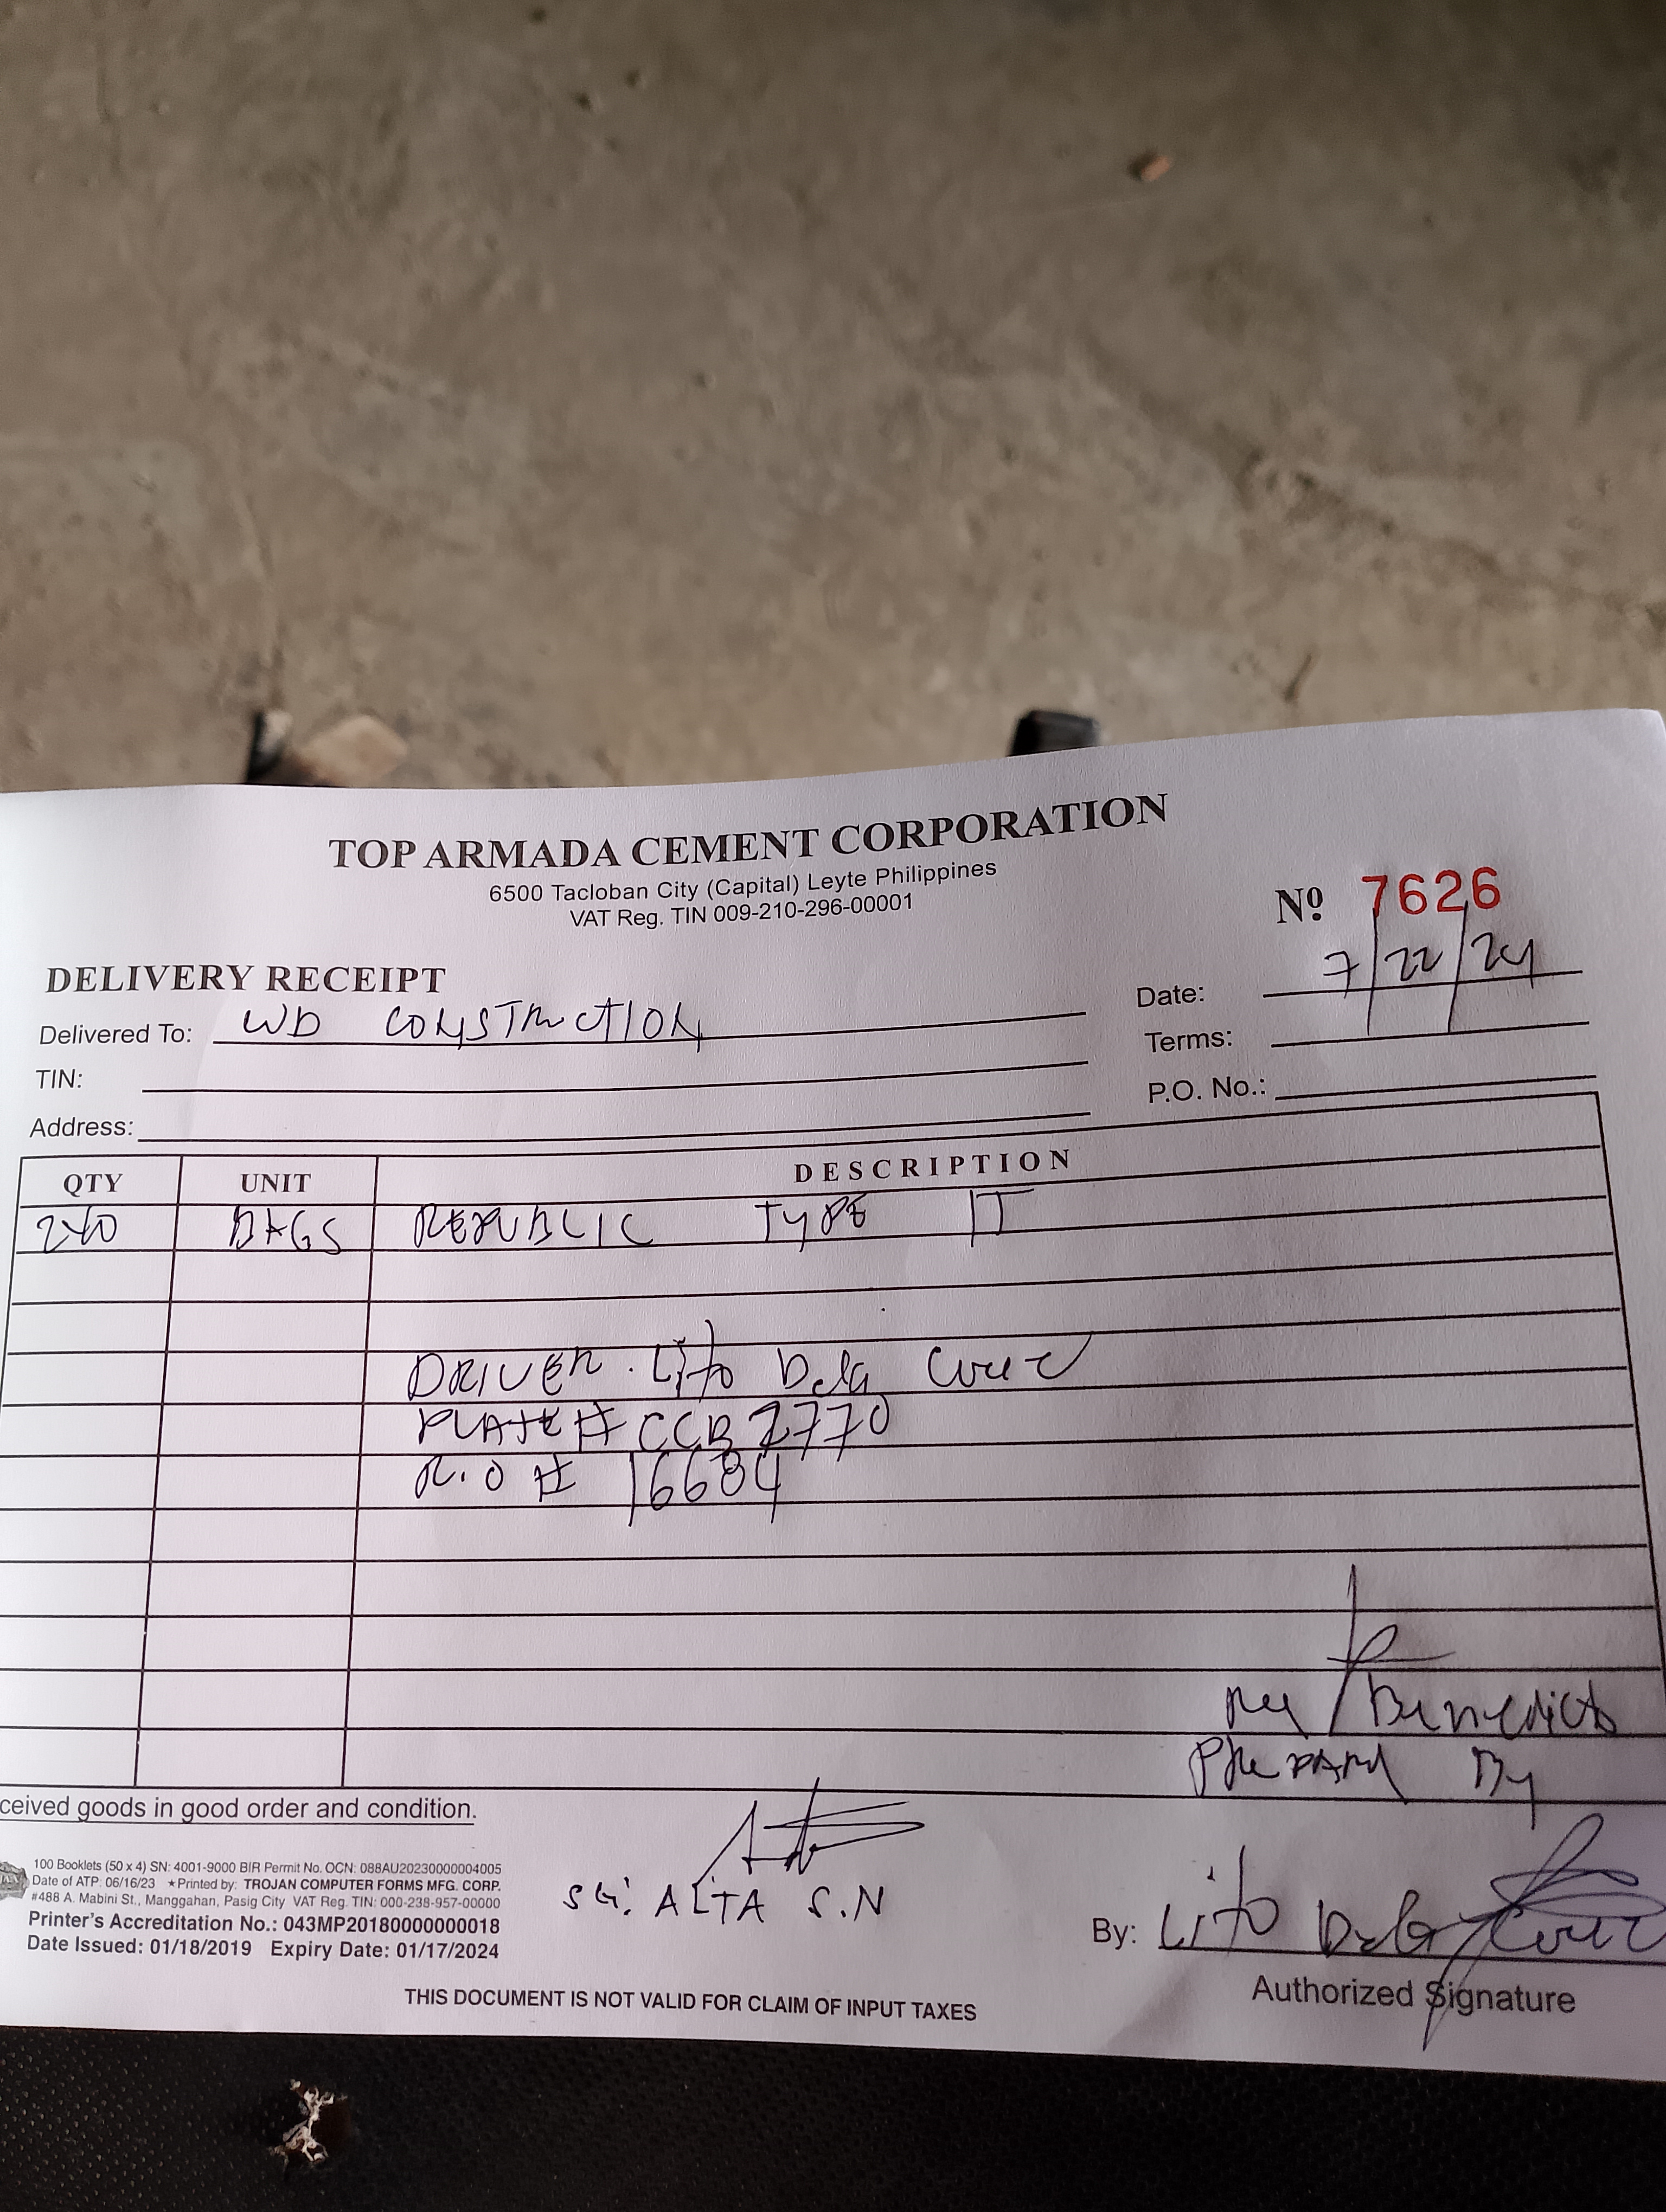 TOP ARMADA CEMENT CORPORATION
6500 Tacloban City (Capital) Leyte Philippines
VAT Reg. TIN 009-210-296-00001
Nº 7626
DELIVERY RECEIPT
Date: 7/22/24
Delivered To: WD CONSTRUCTION
Terms:
TIN:
P.O. No.:
Address:
QTY UNIT DESCRIPTION
240 BAGS REPUBLIC TYPE IT
DRIVER. Lito Dela Cruz
PLATE # CCB 2770
R.O # 16684
Benedicto
By
ceived goods in good order and condition.
100 Booklets (50 x 4) SN: 4001-9000 BIR Permit No. OCN: 088AU20230000004005
Date of ATP: 06/16/23 ★Printed by: TROJAN COMPUTER FORMS MFG. CORP.
#488 A. Mabini St., Manggahan, Pasig City VAT Reg. TIN: 000-238-957-00000
Printer's Accreditation No.: 043MP20180000000018
Date Issued: 01/18/2019 Expiry Date: 01/17/2024
SG: ALTA S.N
By: Lito Dela Cruz
Authorized Signature
THIS DOCUMENT IS NOT VALID FOR CLAIM OF INPUT TAXES